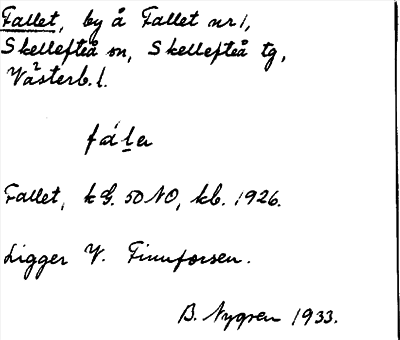 Fallet, by å Fallet nr 1,
Skellefteå sn, Skellefteå tg,
Västerb. l.
Fallet, kG. 50 NO, kb. 1926.
Ligger V. Finnforsen.
B. Nygren 1933.